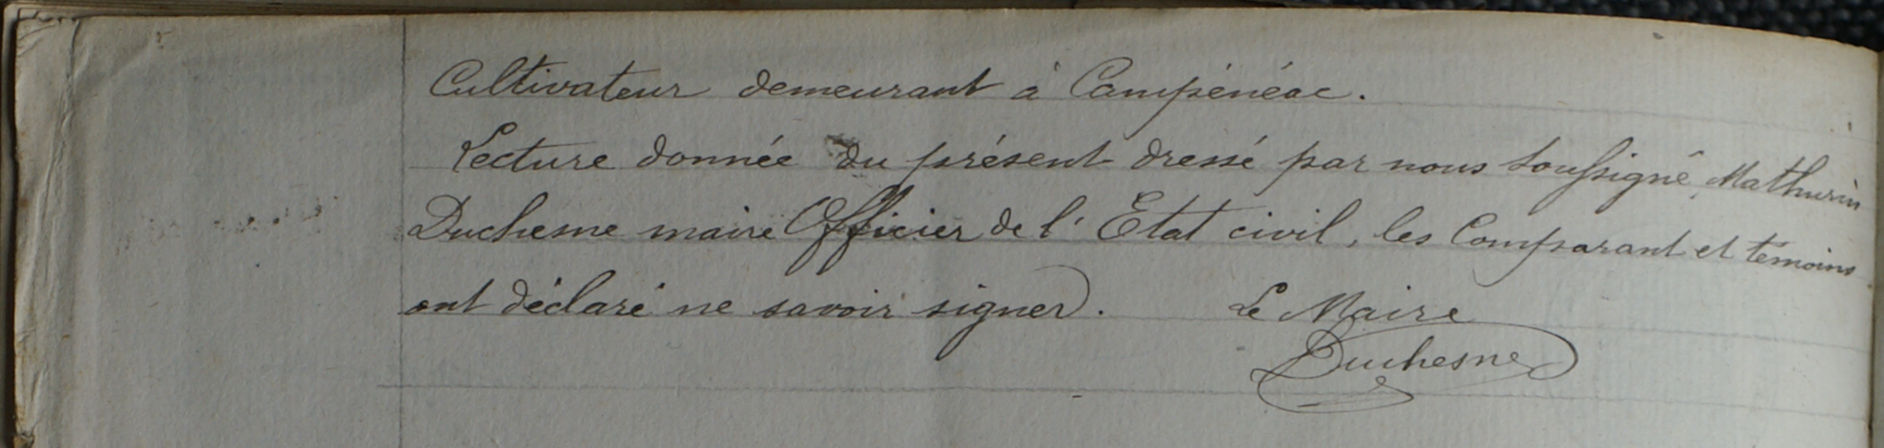 Cultivateur demeurant à Campénéac.
Lecture donnée du présent dressé par nous soussigné Mathurin
Duchesne maire Officier de l'Etat civil, les Comparant et témoins
ont déclaré ne savoir signer. Le Maire
Duchesne